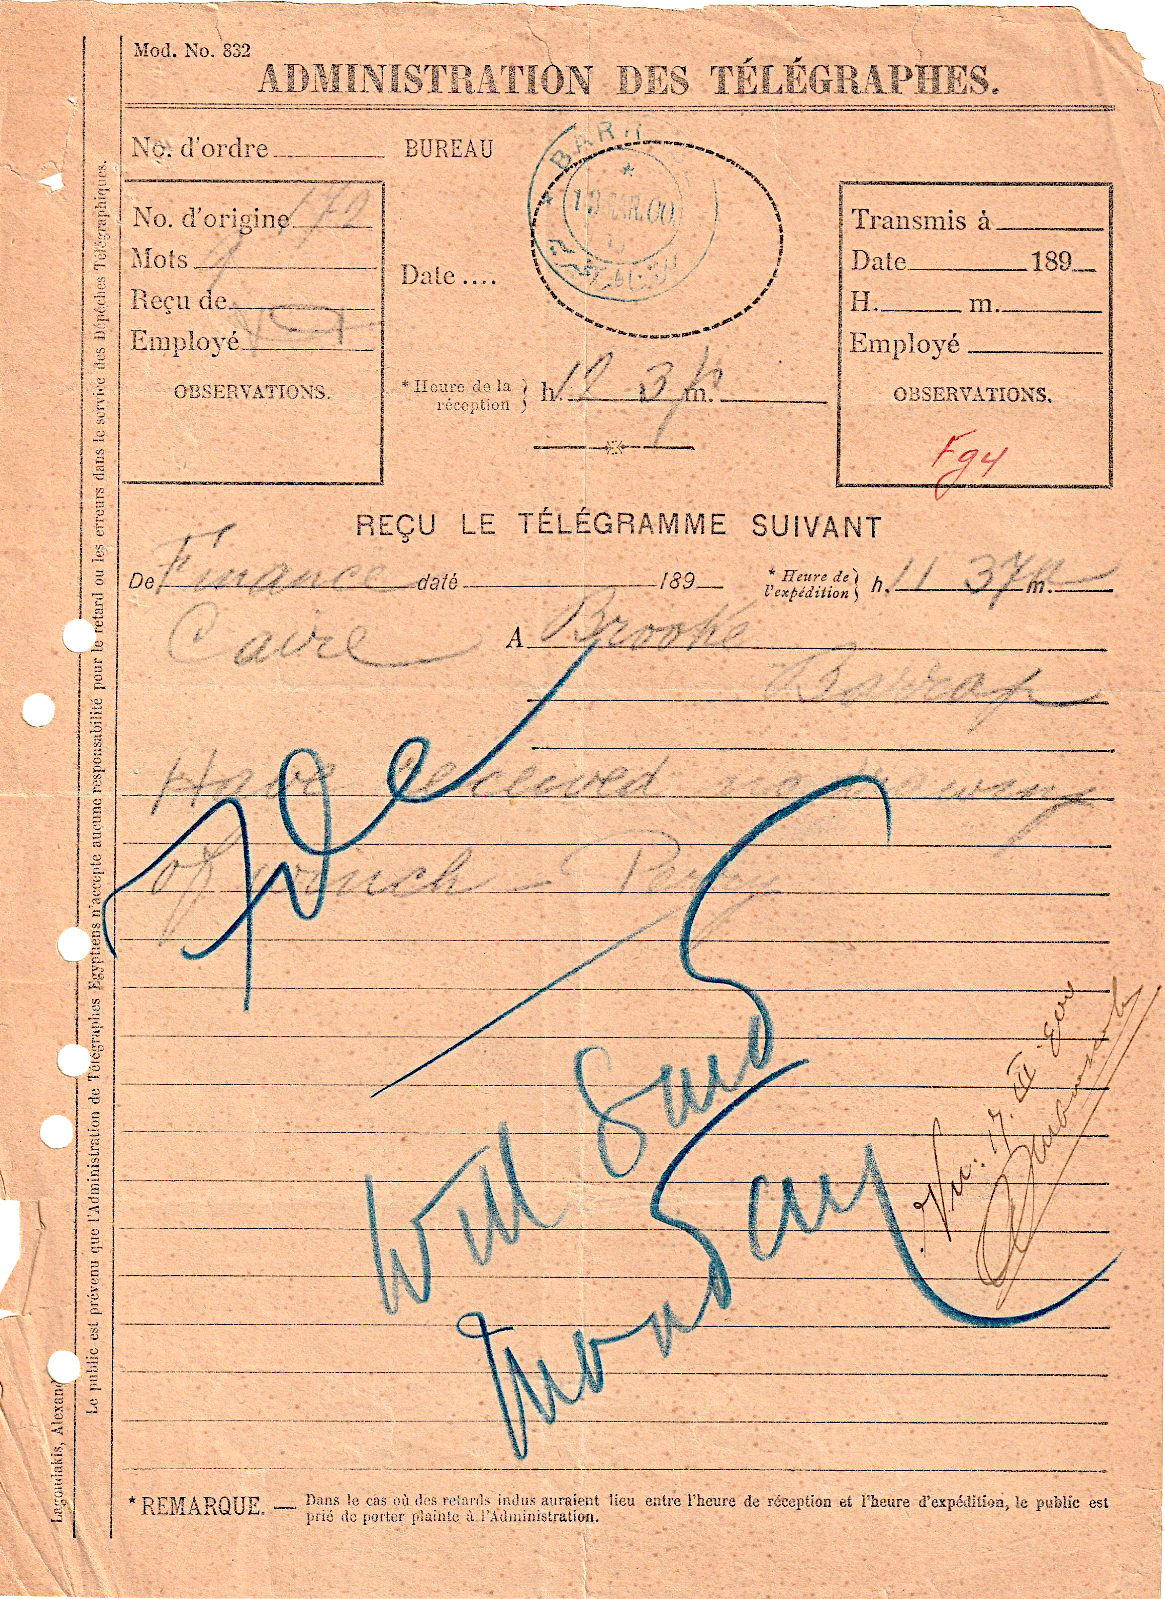 Mod. No. 832
ADMINISTRATION DES TÉLÉGRAPHES.
No. d'ordre
BUREAU
BARR
No. d'origine 172
Mots 9
Reçu de
Employé
OBSERVATIONS.
Date ....
MAR.00
*Heure de la réception } h. 12 3 p m.
Transmis à
Date 189
H. m.
Employé
OBSERVATIONS.
Fgy
REÇU LE TÉLÉGRAMME SUIVANT
De Finance daté 189 * Heure de l'expédition } h. 11 37 a m.
Caire A Brooke
Barrap
Have received no drawing
of winch - Perry
File
Will Send
Monday
Vu: 17. III
Le public est prévenu que l'Administration de Télégraphes Egyptiens n'accepte aucune responsabilité pour le retard ou les erreurs dans le service des Dépêches Télégraphiques.
Lagoudakis, Alexand
*REMARQUE. — Dans le cas où des retards indus auraient lieu entre l'heure de réception et l'heure d'expédition, le public est
prié de porter plainte à l'Administration.